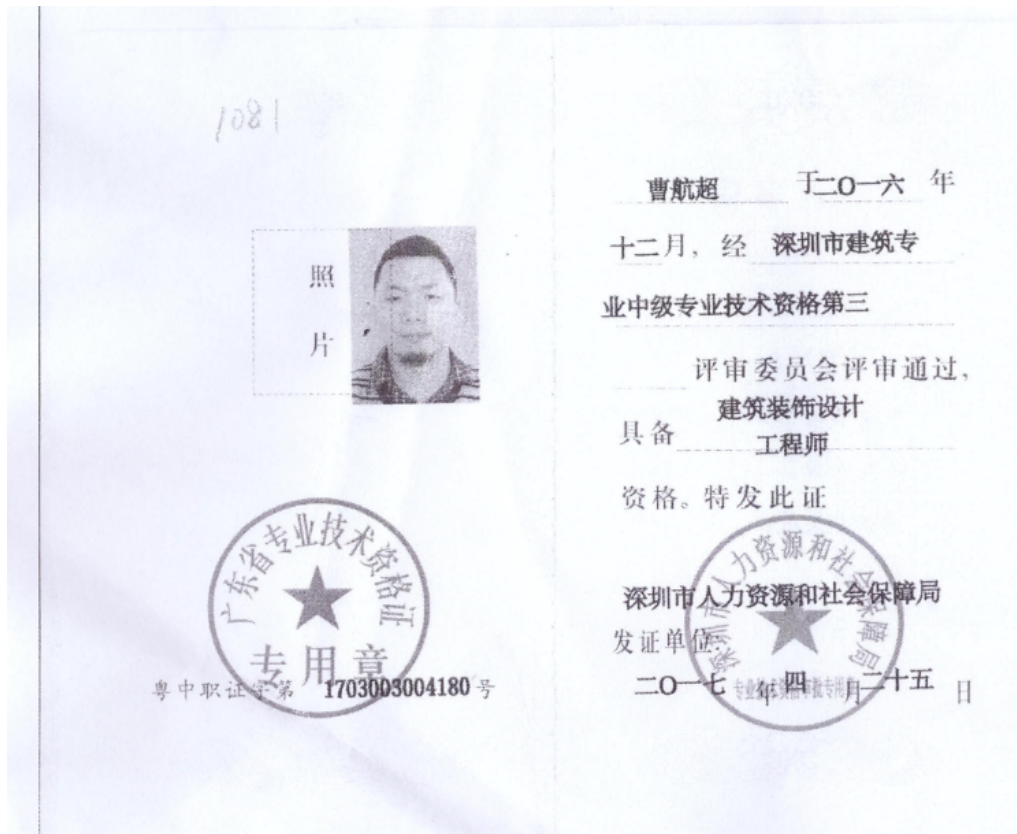 1081
照
片
广东省专业技术资格证
专用章
粤中职证字第 1703003004180号
曹航超 于二O一六 年
十二月, 经 深圳市建筑专
业中级专业技术资格第三
评审委员会评审通过,
具备 建筑装饰设计
工程师
资格。特发此证
深圳市人力资源和社会保障局
深圳市人力资源和社会保障局
发证单位:
专业技术资格审批专用章
二O一七 年 四 月二十五 日